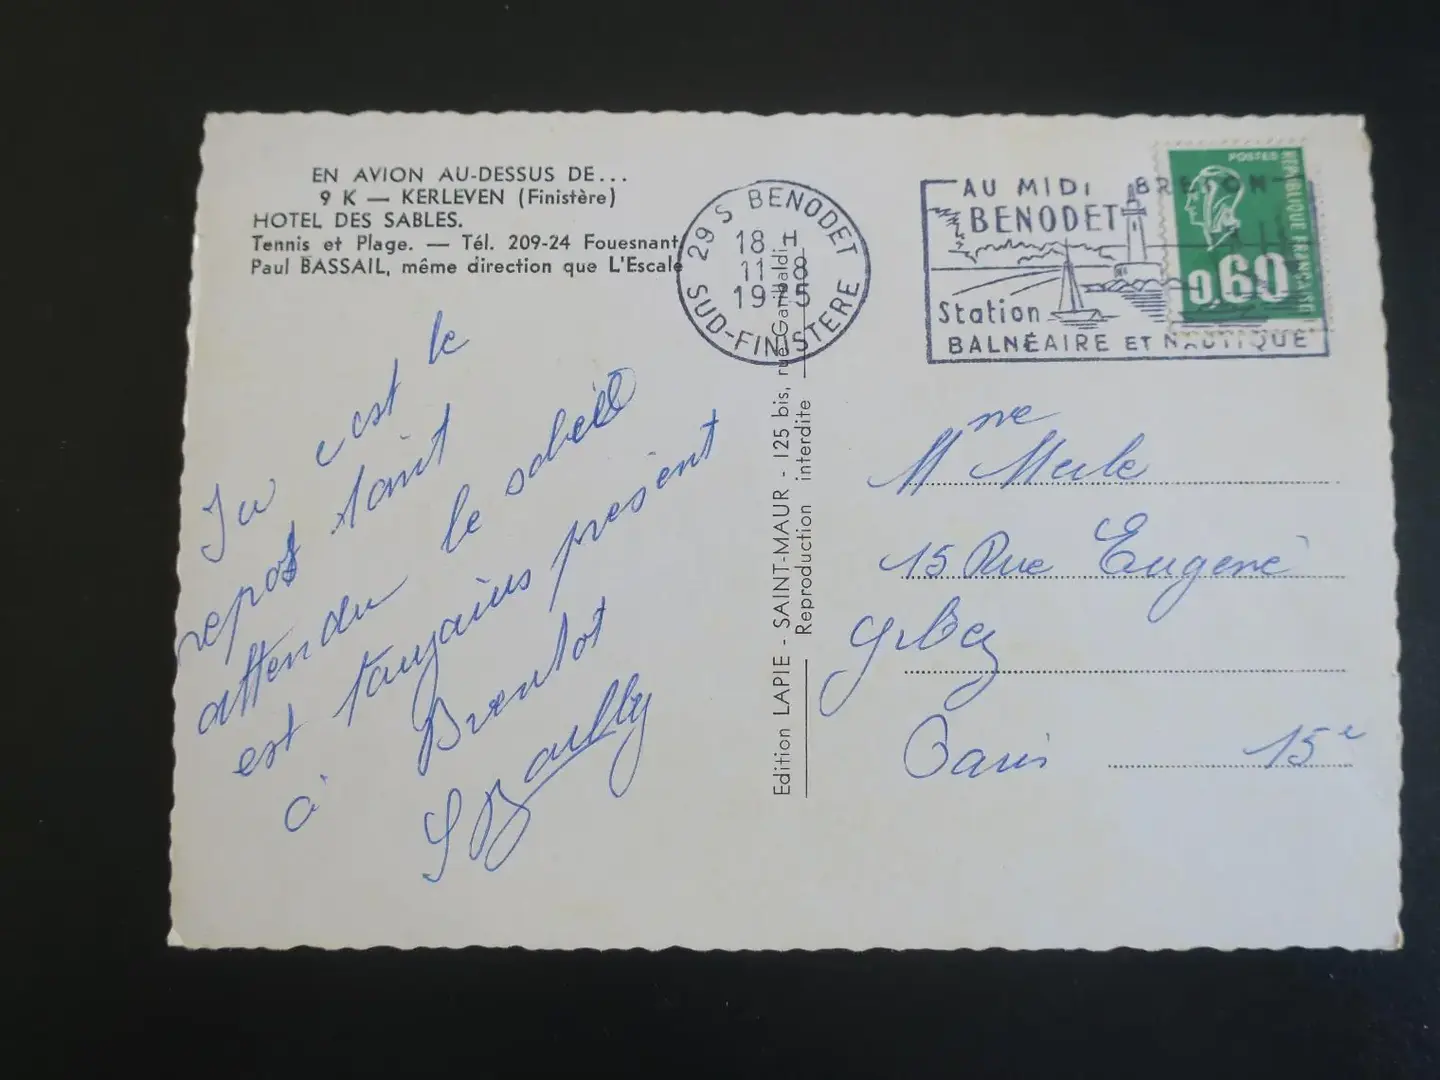 EN AVION AU-DESSUS DE...
9 K — KERLEVEN (Finistère)
HOTEL DES SABLES.
Tennis et Plage. — Tél. 209-24 Fouesnant
Paul BASSAIL, même direction que L'Escale
29 S BENODET
18 H
11-8
1975
SUD-FINISTERE
AU MIDI BRETON
BENODET
Station
BALNÉAIRE ET NAUTIQUE
POSTES
REPUBLIQUE FRANÇAISE
0,60
Edition LAPIE - SAINT-MAUR - 125 bis, rue Garibaldi
Reproduction interdite
Ju est le
repos tant
attendu le soleil
est toujours present
à
Mme Merle
15 Rue Eugene
Gibez
Paris 15e